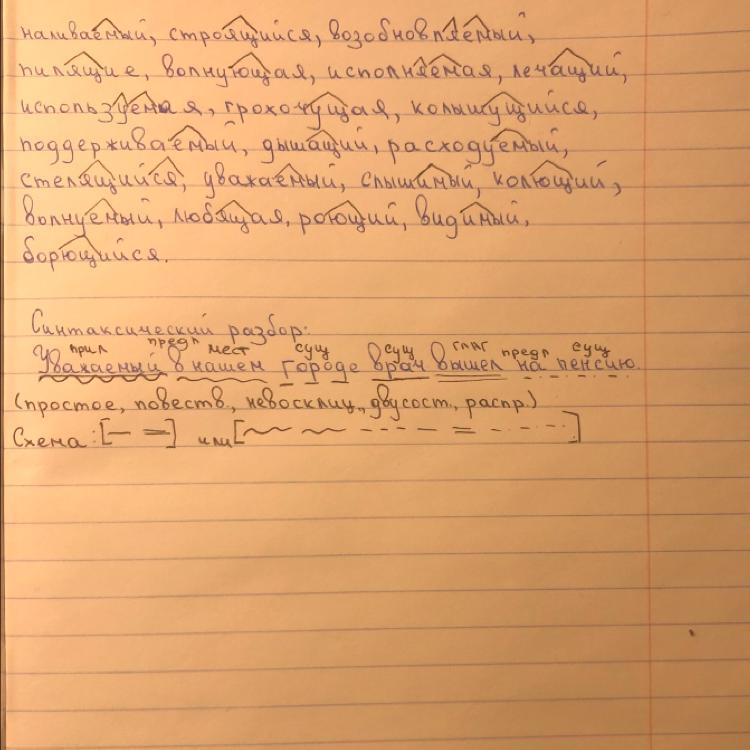 наливаемый, строящийся, возобновляемый,
пилящие, волнующая, исполняемая, лечащий,
используемая, грохочущая, колышущийся,
поддерживаемый, дышащий, расходуемый,
стелящийся, уважаемый, слышимый, колющий,
волнуемый, любящая, роющий, видимый,
борющийся.
Синтаксический разбор:
прил предл мест сущ сущ глаг предл сущ
Уважаемый в нашем городе врач вышел на пенсию.
(простое, повеств., невосклиц., двусост., распр.)
Схема: [— =] или [